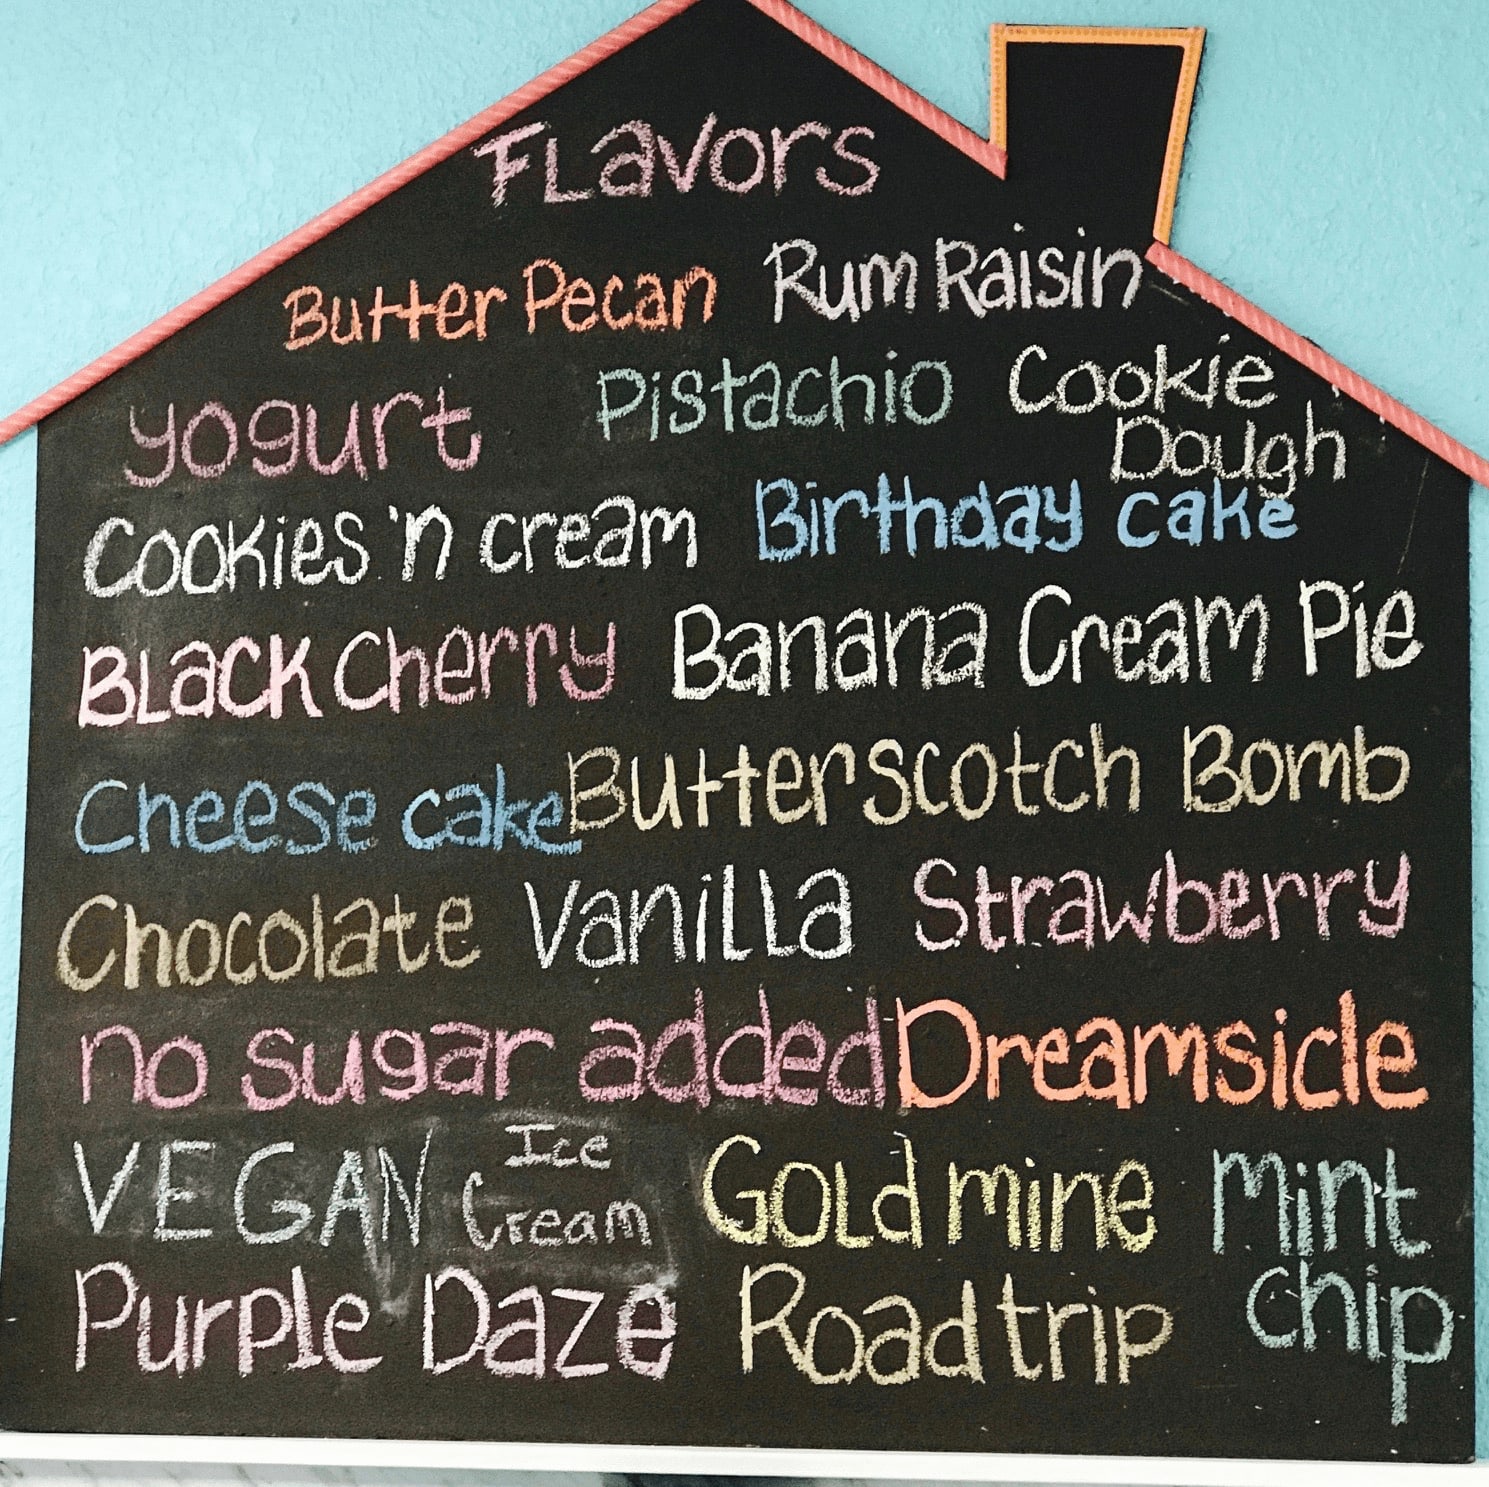 FLavors
Butter Pecan Rum Raisin
yogurt Pistachio Cookie Dough
Cookies 'n cream Birthday cake
BLack Cherry Banana Cream Pie
Cheese cake Butterscotch Bomb
Chocolate VaniLLa Strawberry
no sugar added Dreamsicle
VEGAN Ice Cream GoLd mine mint chip
Purple Daze Road trip